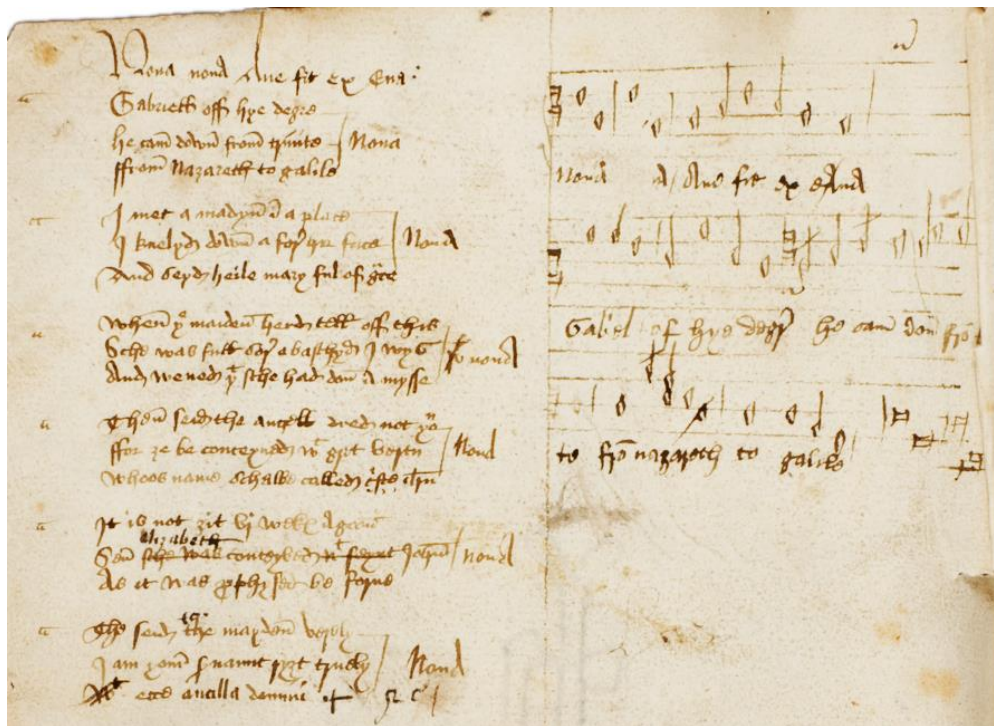 Nova nova Aue fit ex Eua
Gabriell off hye degre
he cam down from trinite
ffrom Nazareth to galile
Nova
I met a madyn in a place
I knelyd down a for hir face
And seyd heile mary ful of gce
Nova
When yͤ maiden herd tell off this
Sche was full sor abasshyd I wys
And wened yͭ sche had don a mysse
nova
Then seid the angell dred not
ffor ye be conceyued wͭ gret vertu
Whoos name schal be called
Nova
It is not zit vj weke agoon
elizabeth
Sen sche was conceyued John
As it was prophysed be forne
nova
The seid the mayden verely
I am youre seruaunt ryzt truely
ecce ancilla domini
Nova
Nova Aue fit ex eva
Gabriel of hye degr he cam don fro
te fro nazareth to galile